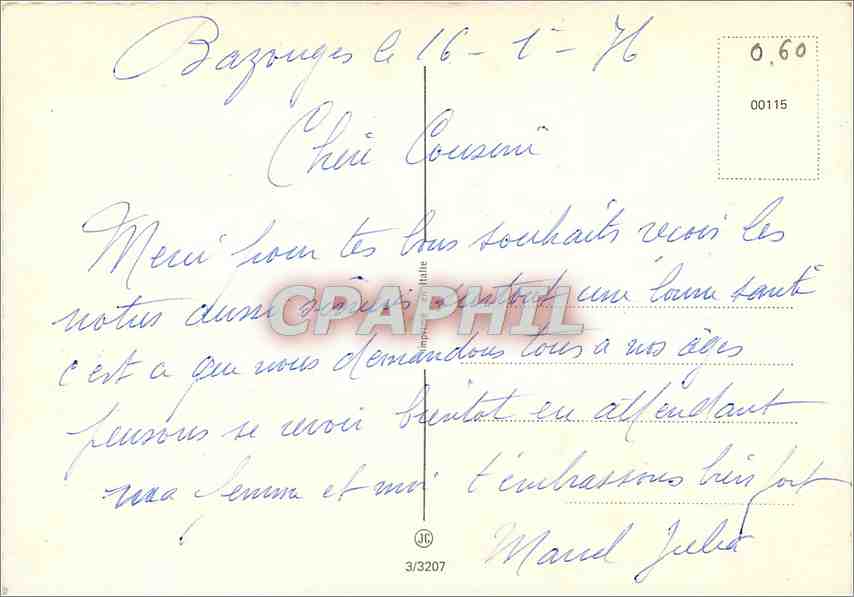 Bazouges le 16 - 1 - 76
0,60
00115
Chère Cousine
Merci pour tes bons souhaits reçois les
notres aussi surtout une bonne santé
c'est ce que nous demandons tous a nos âges
pensons se revoir bientot en attendant
ma femme et moi t'embrassons bien fort
Marcel
Imprimé en Italie
CPAPHIL
JC
3/3207